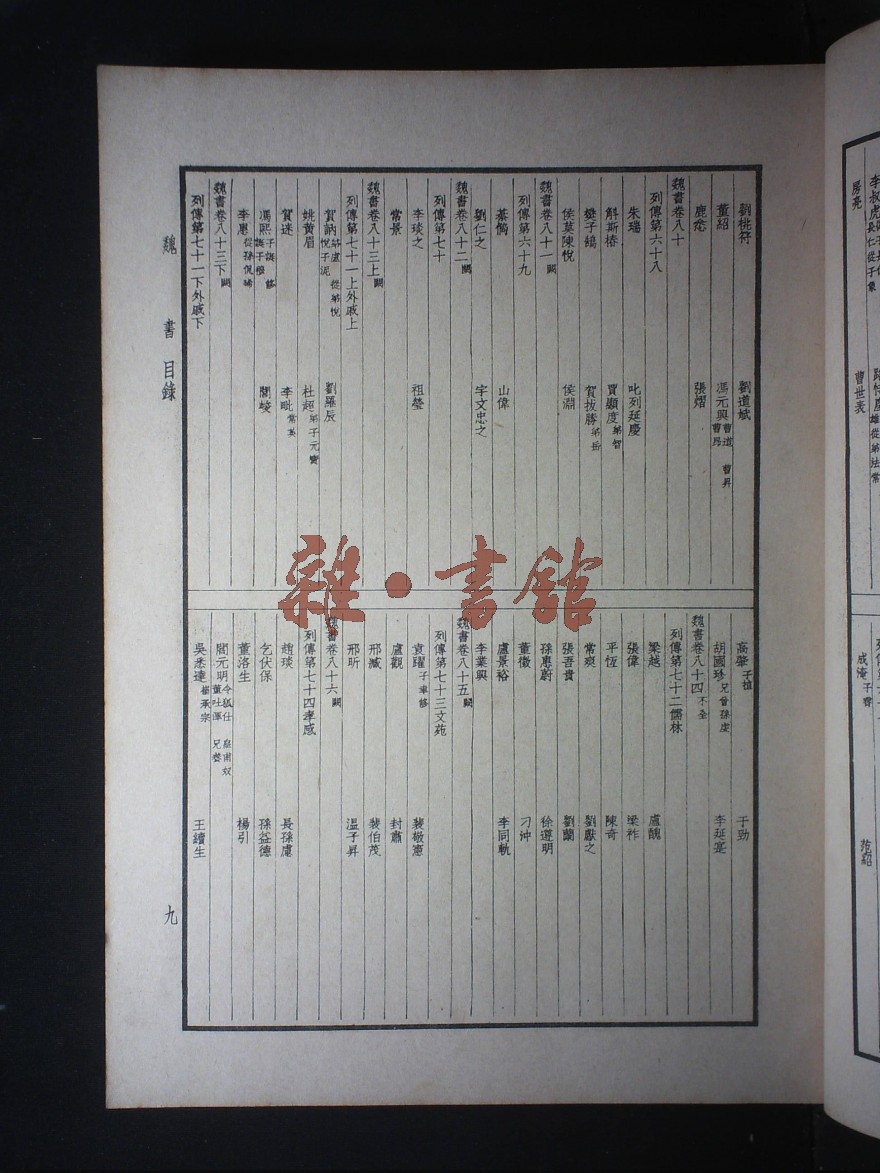 劉桃符 劉道斌
董紹 馮元興 曹道 曹昇 曹昂
鹿悆 張熠
魏書卷八十
列傳第六十八
朱瑞 叱列延慶
斛斯椿 賈顯度 弟智
樊子鵠 賀拔勝 弟岳
侯莫陳悅 侯淵
魏書卷八十一 闕
列傳第六十九
綦儁 山偉
劉仁之 宇文忠之
魏書卷八十二 闕
列傳第七十
李琰之 祖瑩
常景
魏書卷八十三上 闕
列傳第七十一上外戚上
賀訥 弟盧 從弟悅 悅子泥 劉羅辰
姚黃眉 杜超 弟子元寶
賀迷 李毗 常英
馮熙 子誕 脩 誕子穆 閭毗
李惠 從孫侃晞
魏書卷八十三下 闕
列傳第七十一下外戚下
高肇 子植 于勁
胡國珍 兄曾孫虔 李延寔
魏書卷八十四 不全
列傳第七十二儒林
梁越 盧醜
張偉 梁祚
平恆 陳奇
常爽 劉獻之
張吾貴 劉蘭
孫惠蔚 徐遵明
董徵 刁沖
盧景裕 李同軌
李業興
魏書卷八十五 闕
列傳第七十三文苑
袁躍 子聿脩 裴敬憲
盧觀 封肅
邢臧 裴伯茂
邢昕 溫子昇
魏書卷八十六 闕
列傳第七十四孝感
趙琰 長孫慮
乞伏保 孫益德
董洛生 楊引
閻元明 令狐仕 皇甫奴 董吐渾 兄養
吳悉達 崔承宗 王續生
魏書 目錄
九
雜·書館
房亮
曹世表
成淹 子霄
范紹